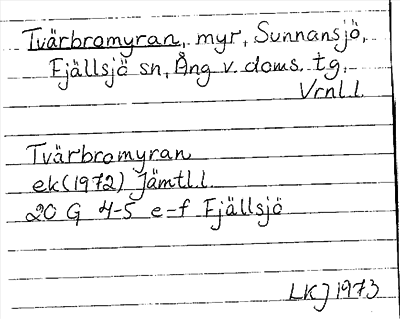 Tvärbromyran, myr, Sunnansjö,
Fjällsjö sn, Ång v. doms. tg.
Vrnl.l.
Tvärbromyran
ek(1972) Jämtl.l.
20 G 4-5 e-f Fjällsjö
LKJ 1973